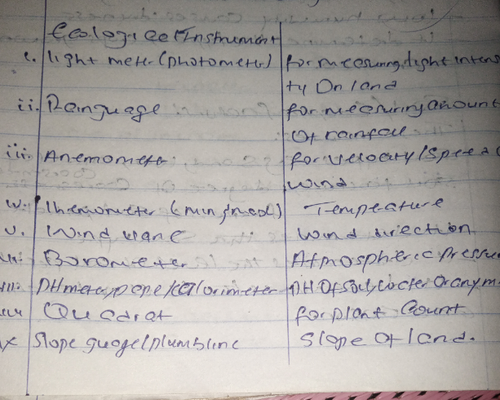 Ecological Instrument
i. light meter (photometer) for measuring light intens
ty On land
ii. Rainguage for measuring amount
Of rainfall
iii. Anemometer for velocity/speed
wind
iv. Thermometer (min, &max) Tempeature
v. Wind vane wind direction
Barometer Atmospheric Pressu
PH meter, pape/colorimeter PH Of soil, water Or any m
Quadrat for plant Count
x Slope guage/plumbline Slope Of land.